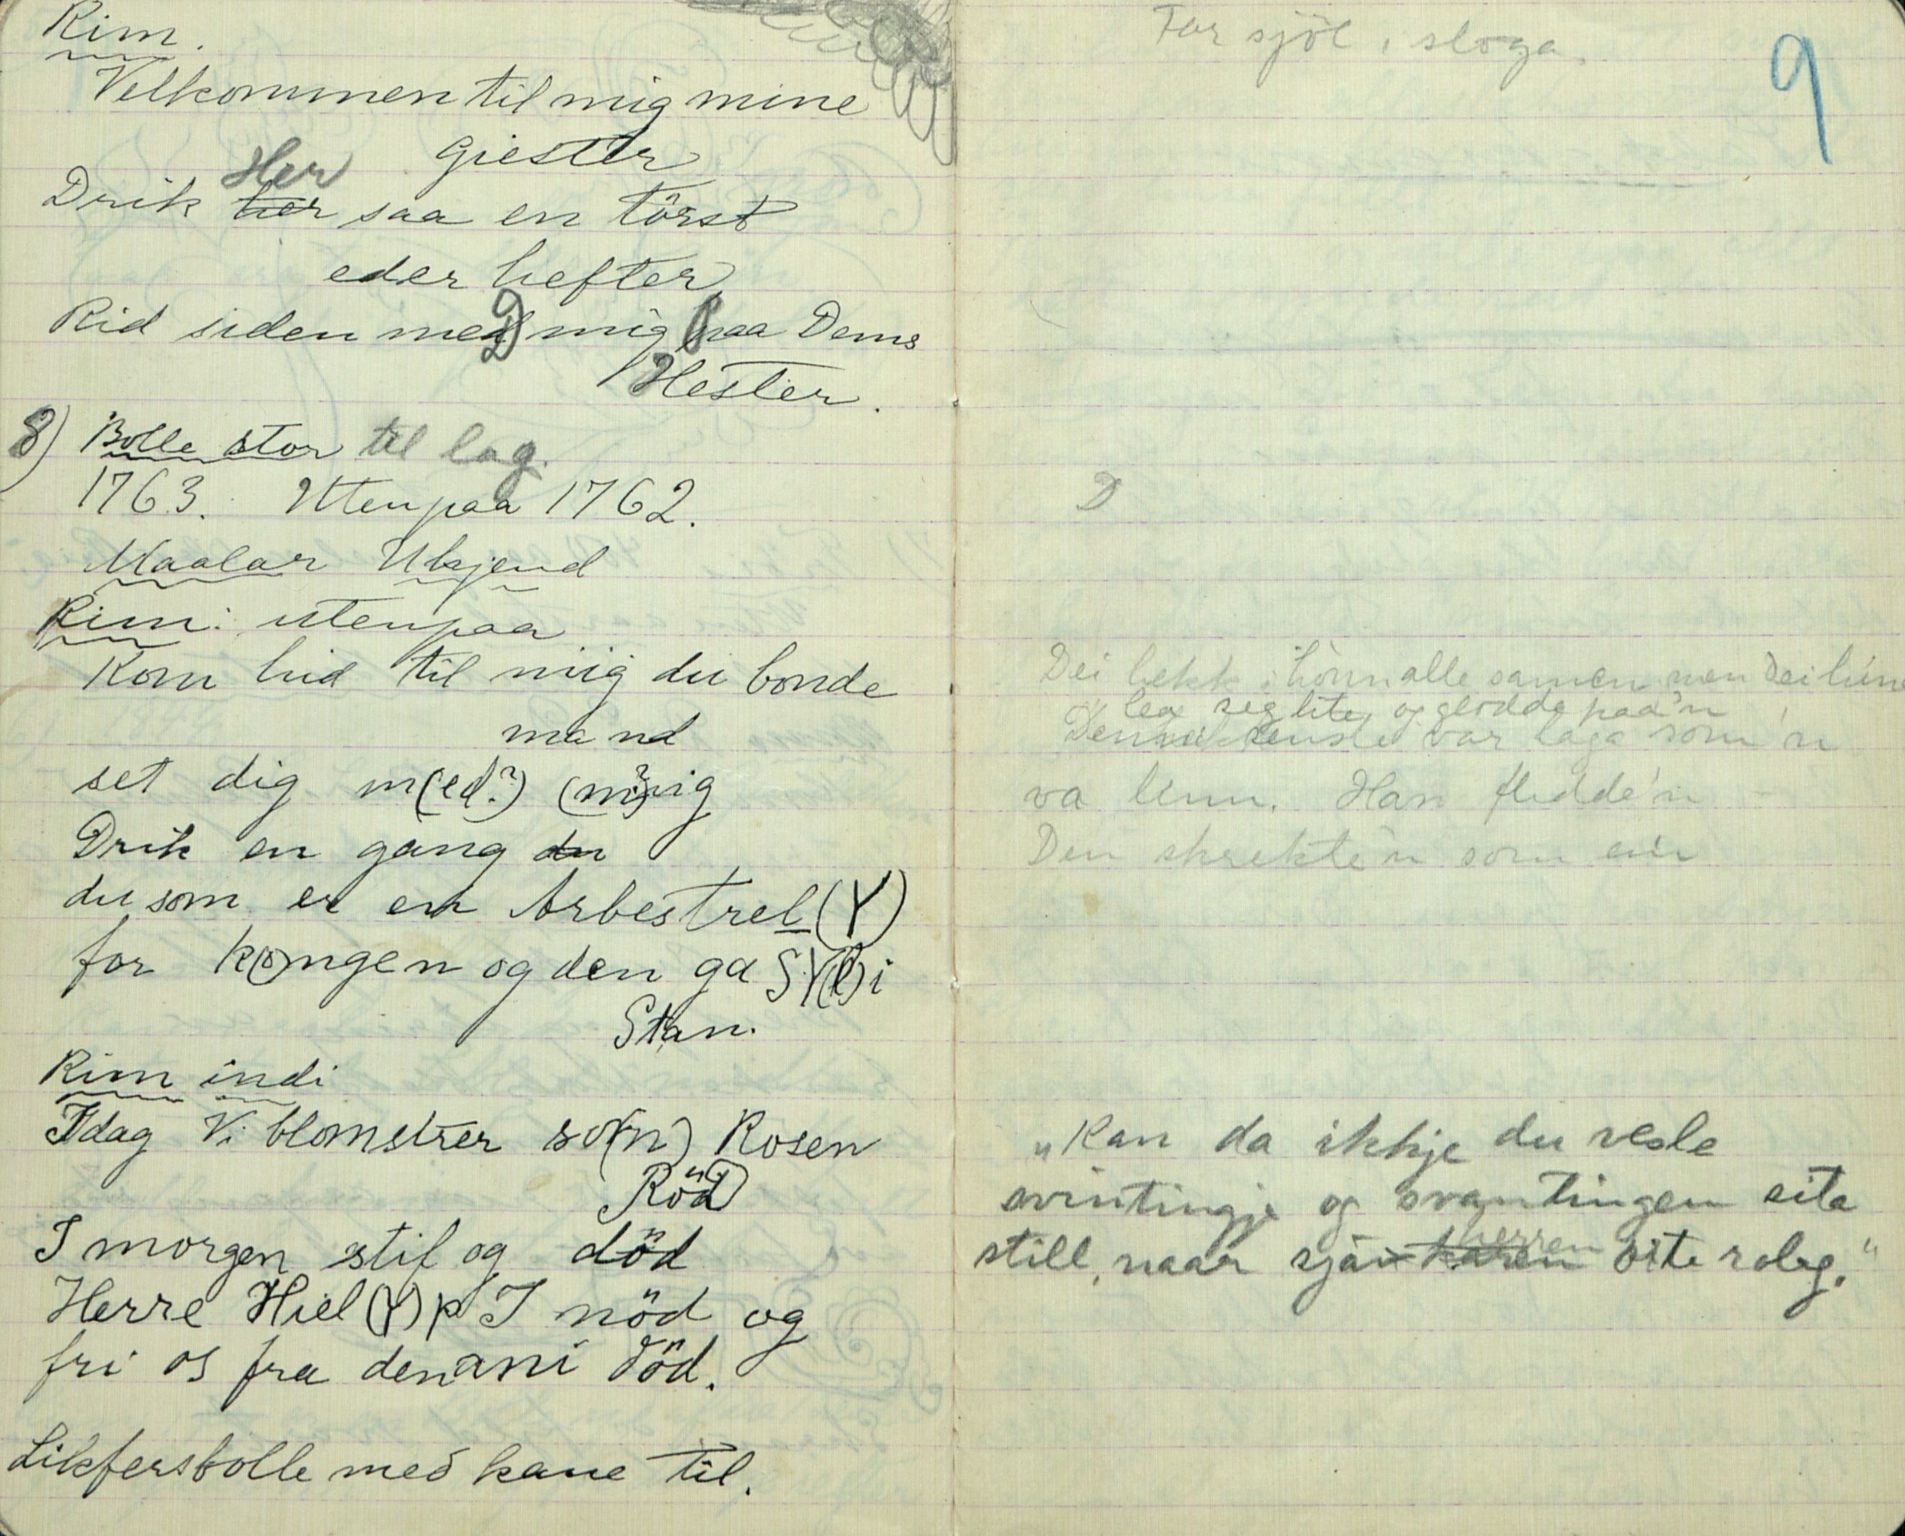 Rim.
Velkommen til mig mine
Giester
Her
Drik her saa en törst
eder hefter
Rid siden meD mig Paa Dems
Hester.
8) Bolle stor til lag.
1763. Utenpaa 1762.
Maalar Ukjend
Rim: utenpaa
Kom hid til miig du bonde
mand
set dig m(ed?) (m?)iig
Drik en gang du
du som er en Arbestrel(Y)
for k(o)ngen og den ga SY(l)i
Stan.
Rim indi
Idag Vi blomstrer so(m) Rosen
RöD
I morgen stif og död
Herre Hiel(Y)p I nöd og
fri os fra den ani död.
Likfersbolle med kane til.
Far sjöl i sloga
9
D
Dei hekk i hònn alle samen men dei
seg lite og glodde paa'n
var laga som 'n
va linn. Han flidde'n
Den skrekte'n som ein
"Kan da ikkje du vesle
svintingje og svantingen sita
herren
still, naar sjav karen site roleg."